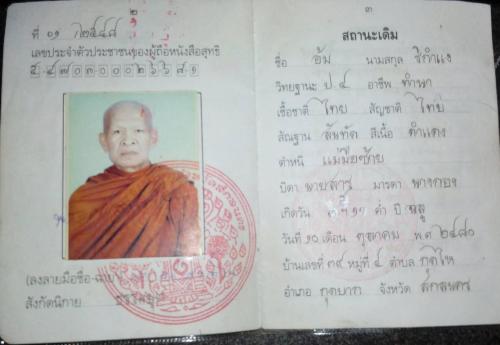 ๒
ที่ ๐๑ /๒๕๔๘
เลขประจำตัวประชาชนของผู้ถือหนังสือสุทธิ
(ลงลายมือชื่อ-ฉายา)
สังกัดนิกาย ธรรมยุต
๓
สถานะเดิม
ชื่อ อ้ม นามสกุล
วิทยฐานะ ป.๔ อาชีพ ทำนา
เชื้อชาติ ไทย สัญชาติ ไทย
สัณฐาน สันทัด สีเนื้อ ดำแดง
ตำหนิ
บิดา นายสาร มารดา นางทอง
เกิดวัน ค่ำ ปี ฉลู
วันที่ ๑๐ เดือน ตุลาคม พ.ศ ๒๔๘๐
บ้านเลขที่ ๓๙ หมู่ที่ ๔ ตำบล กุดไห
อำเภอ กุดบาก จังหวัด สกลนคร